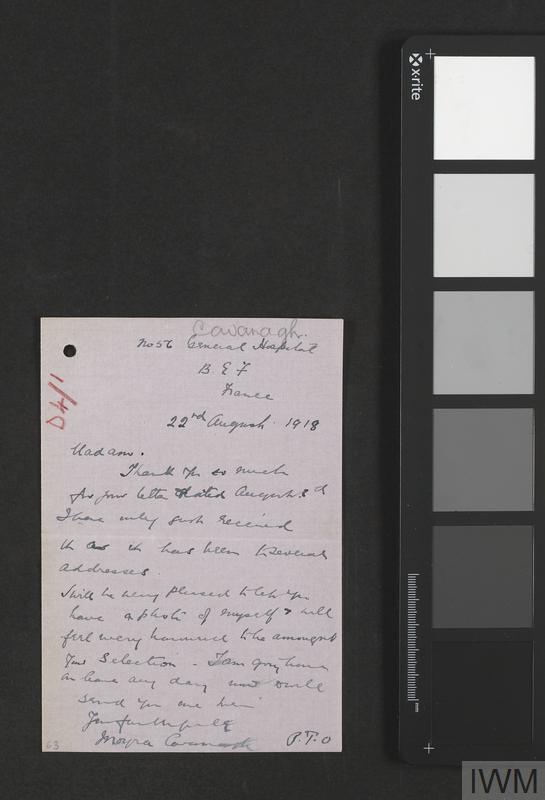 Cavanagh.
No 56 General Hospital
B E F
France
22nd August. 1918
D4/1
Madam.
Thank you so much
for your letter dated August 3rd
I have only just received
it as it has been to several
addresses.
I will be very pleased to let you
have a photo of myself & will
feel very honoured to be amongst
your selection - I am going home
on leave any day now & will
send you one
Yours faithfully
Moyra Cavanagh
P.T.O
63
x-rite
mm
IWM